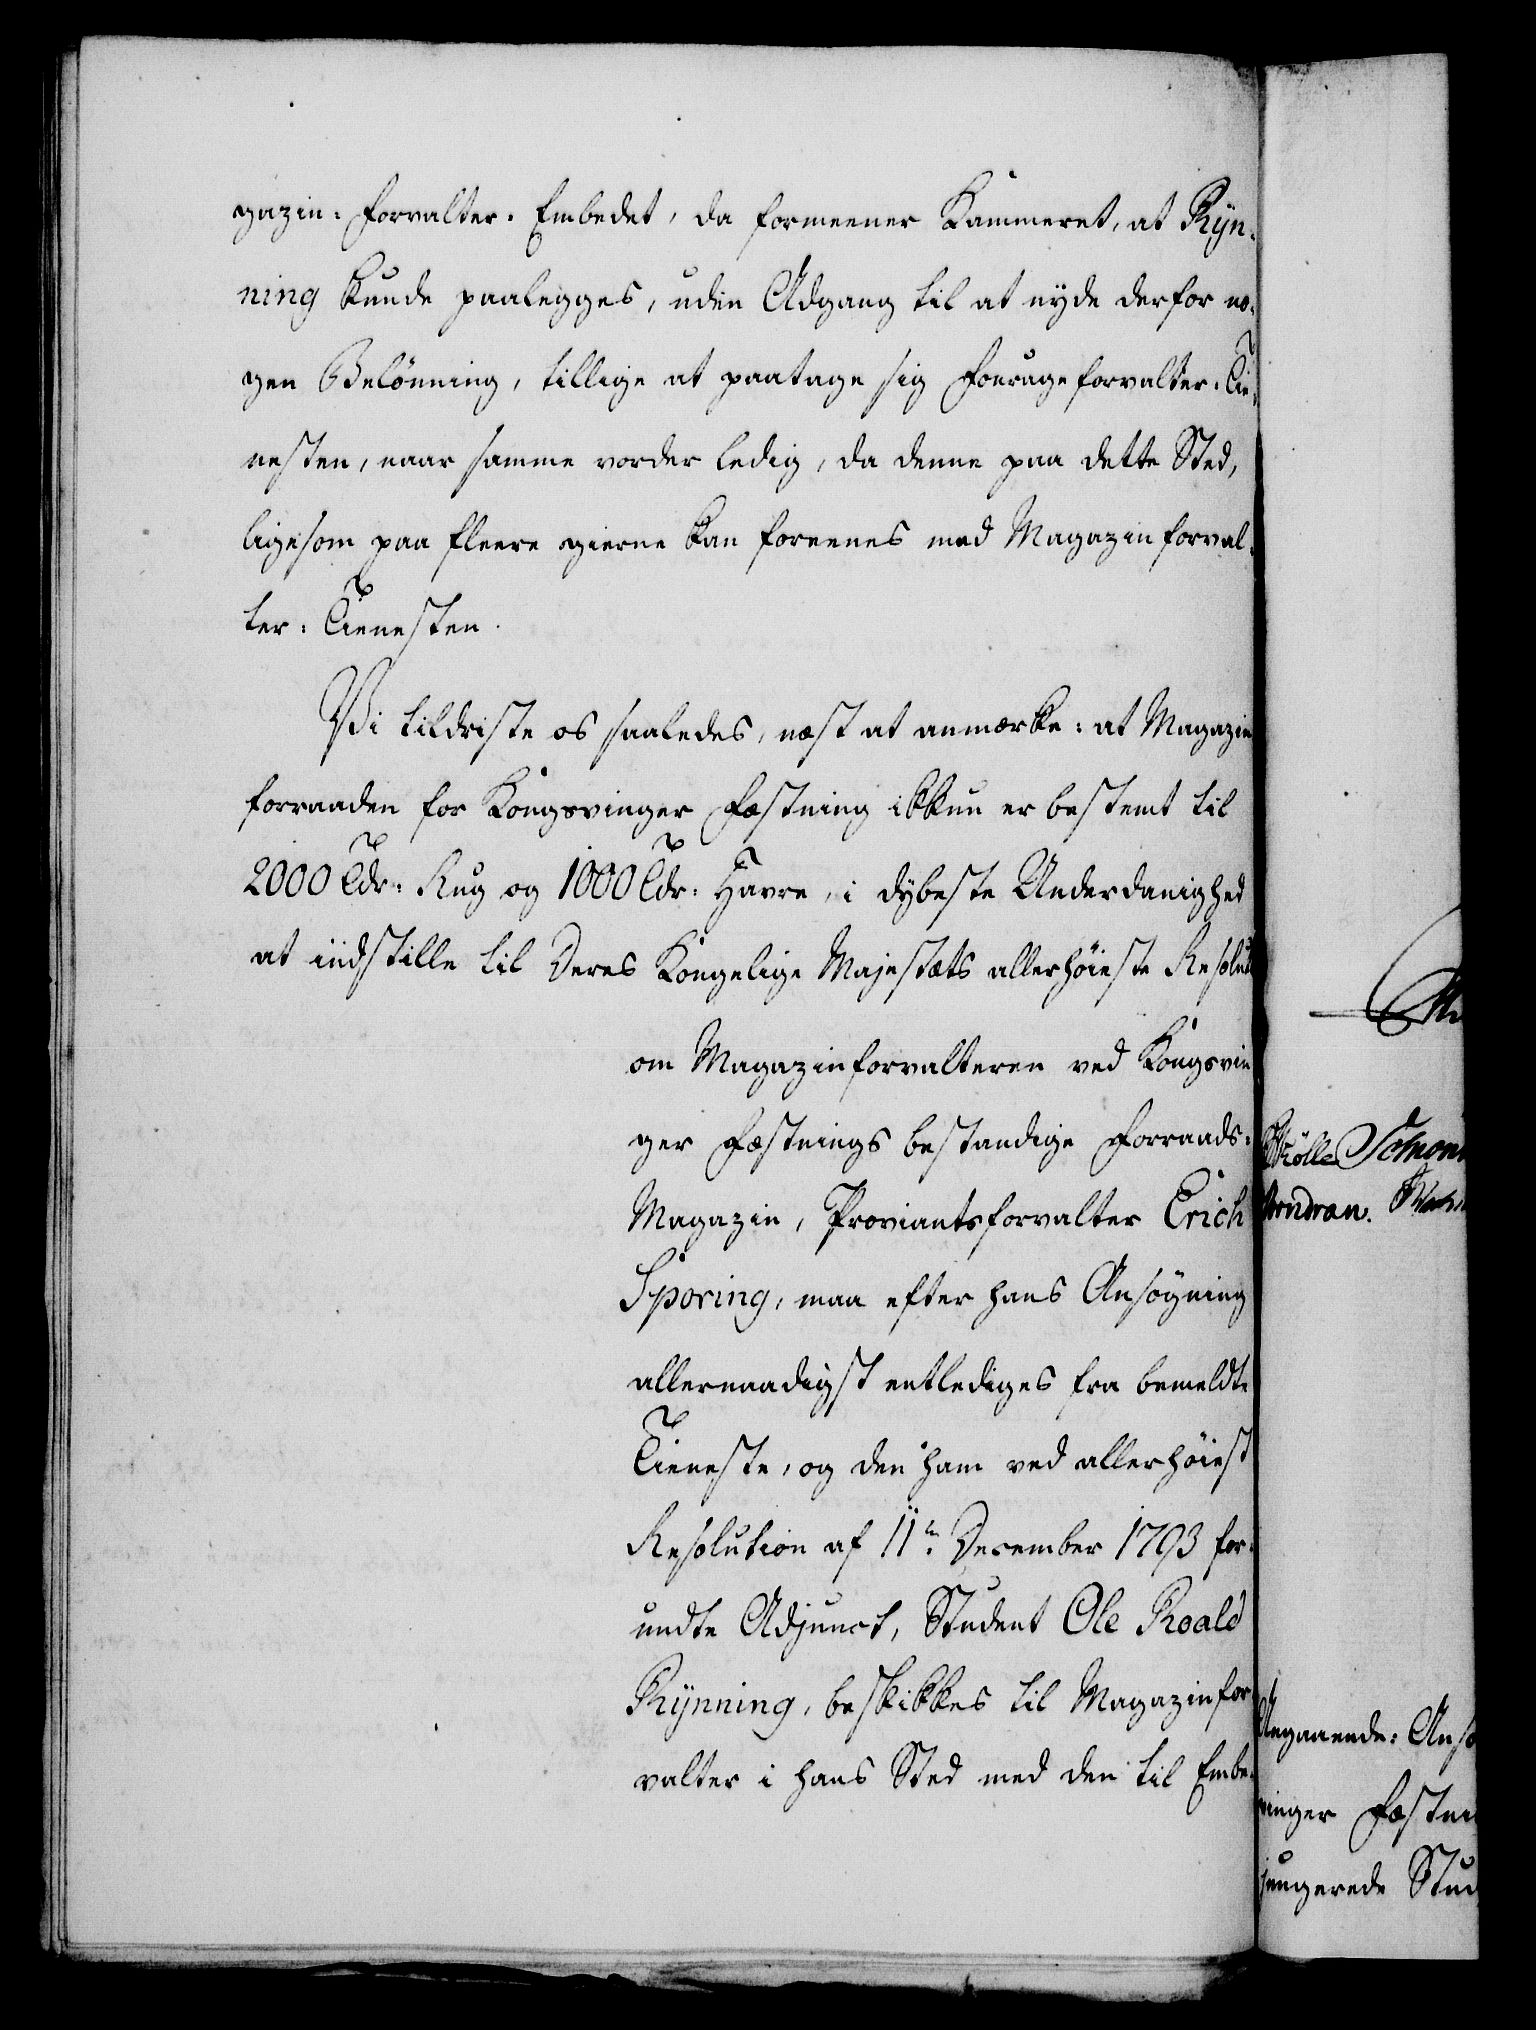 gazin-Forvalter-Embedet, da formeener Kammeret, at Ryn-
ning kunde paalegges, uden Adgang til at nyde derfor no-
gen Belønning, tillige at paatage sig Fourageforvalter-Tie-
nesten, naar samme vorder ledig, da denne paa dette Sted,
ligesom paa fleere gierne kan foreenes med Magazinforval-
ter-Tienesten.
Vi tildriste os saaledes, næst at anmærke: at Magazin
forraaden for Kongsvinger Fæstning ikkun er bestemt til
2000 Tdr: Rug og 1000 Tdr: Havre, i dybeste Underdanighed
at indstille til Deres Kongelige Majestæts allerhøieste Resolut
om Magazinforvalteren ved Kongsvin
ger Fæstnings bestandige Forraads-
Magazin, Proviantforvalter Erich
Sporing, maa efter hans Ansøgning
allernaadigst entlediges fra bemeldte
Tieneste, og den ham ved allerhøiest
Resolution af 11te December 1793 for-
undte Adjunct, Student Ole Roald
Rynning, beskikkes til Magazinfor
valter i hans Sted med den til Embe-
Angaaende: Ansø
vinger Fæstni
jungerede Stud